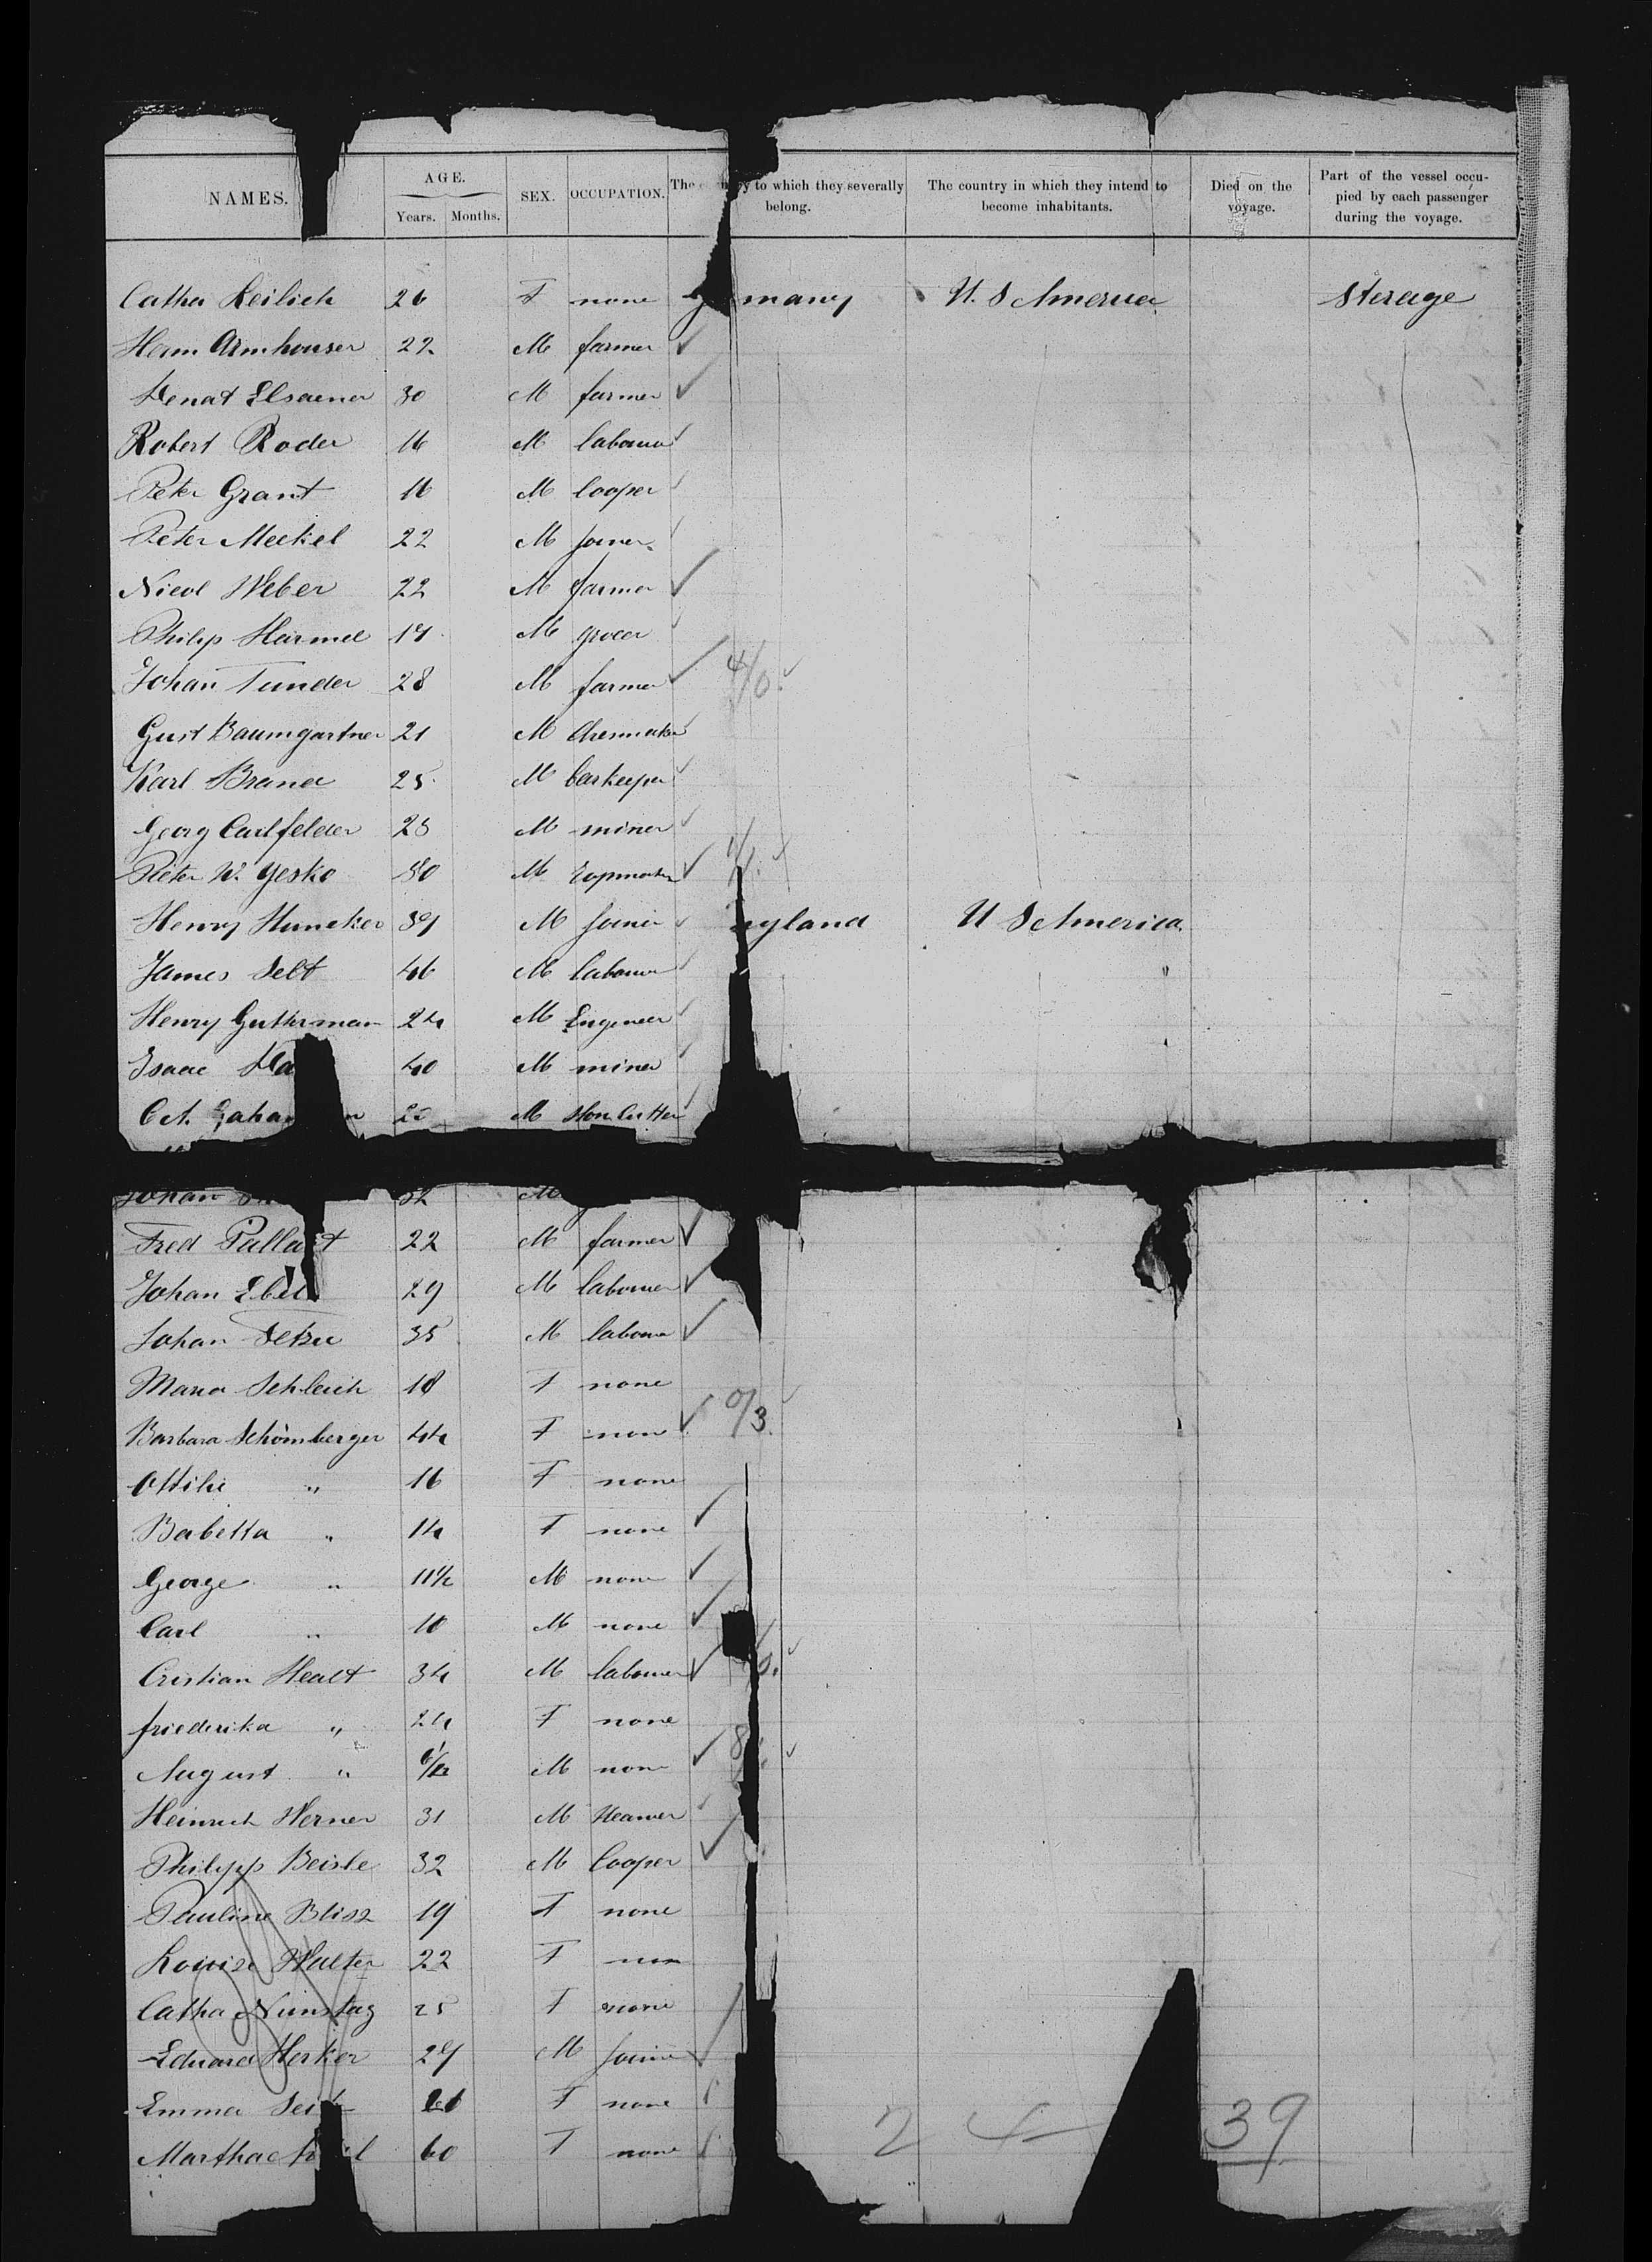 NAMES. AGE. SEX. OCCUPATION. The to which they severally belong. The country in which they intend to become inhabitants. Died on the voyage. Part of the vessel occupied by each passenger during the voyage.
Years. Months.
Catha Keilich 26 F none many U. S America Sterage
Herm Armhouser 22 M farmer
Renat Elsaener 30 M farmer
Robert Roder 16 M labourer
Peter Grant 16 M Cooper
Peter Meckel 22 M Joiner
Nicol Weber 22 M farmer
Philip 19 M grocer
Johan Tunder 28 M farmer 4/0
Gust Baumgartner 21 M
Karl 25 M barkeeper
Georg Carlfelder 25 M miner
Peter W. Yesko 50 M 1/1
Henry Huncker 39 M Joiner gland U S America
James Selt 46 M labourer
Henry Gutterman 24 M Engeneer
Isaac 40 M miner
M
Johan 32 M
Fred 22 M farmer
Johan 29 M labourer
Johan 35 M labourer
Maria Schleich 18 F none
Barbara Schömberger 44 F none 0/3
Ottilie " 16 F none
Babetta " 14 F none
George " 11½ M none
Carl " 10 M none
Cristian Healt 34 M labourer
friederika " 24 F none
August " M none
Heinrich Werner 31 M
Philipp Beisle 32 M Cooper
Pauline Bliss 19 F none
Louise Walter 22 F non
Catha Nunstag 25 F none
Eduard Herker 29 M Joiner
Emma F none
Martha 60 F none
2 4 39